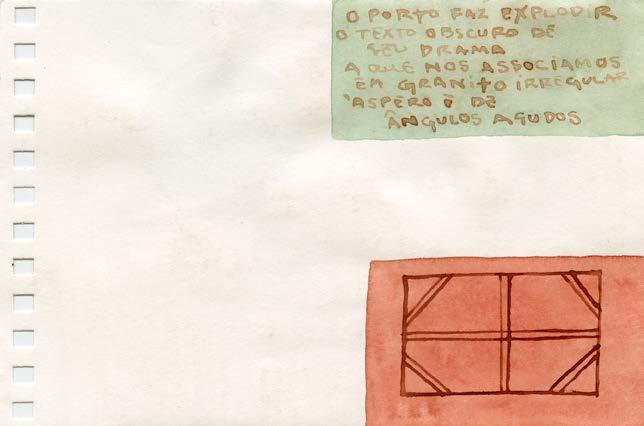 O PORTO FAZ EXPLODIR
O TEXTO OBSCURO DE
SEU DRAMA
A QUE NOS ASSOCIAMOS
EM GRANITO IRREGULAR
ÁSPERO E DE
ÂNGULOS AGUDOS